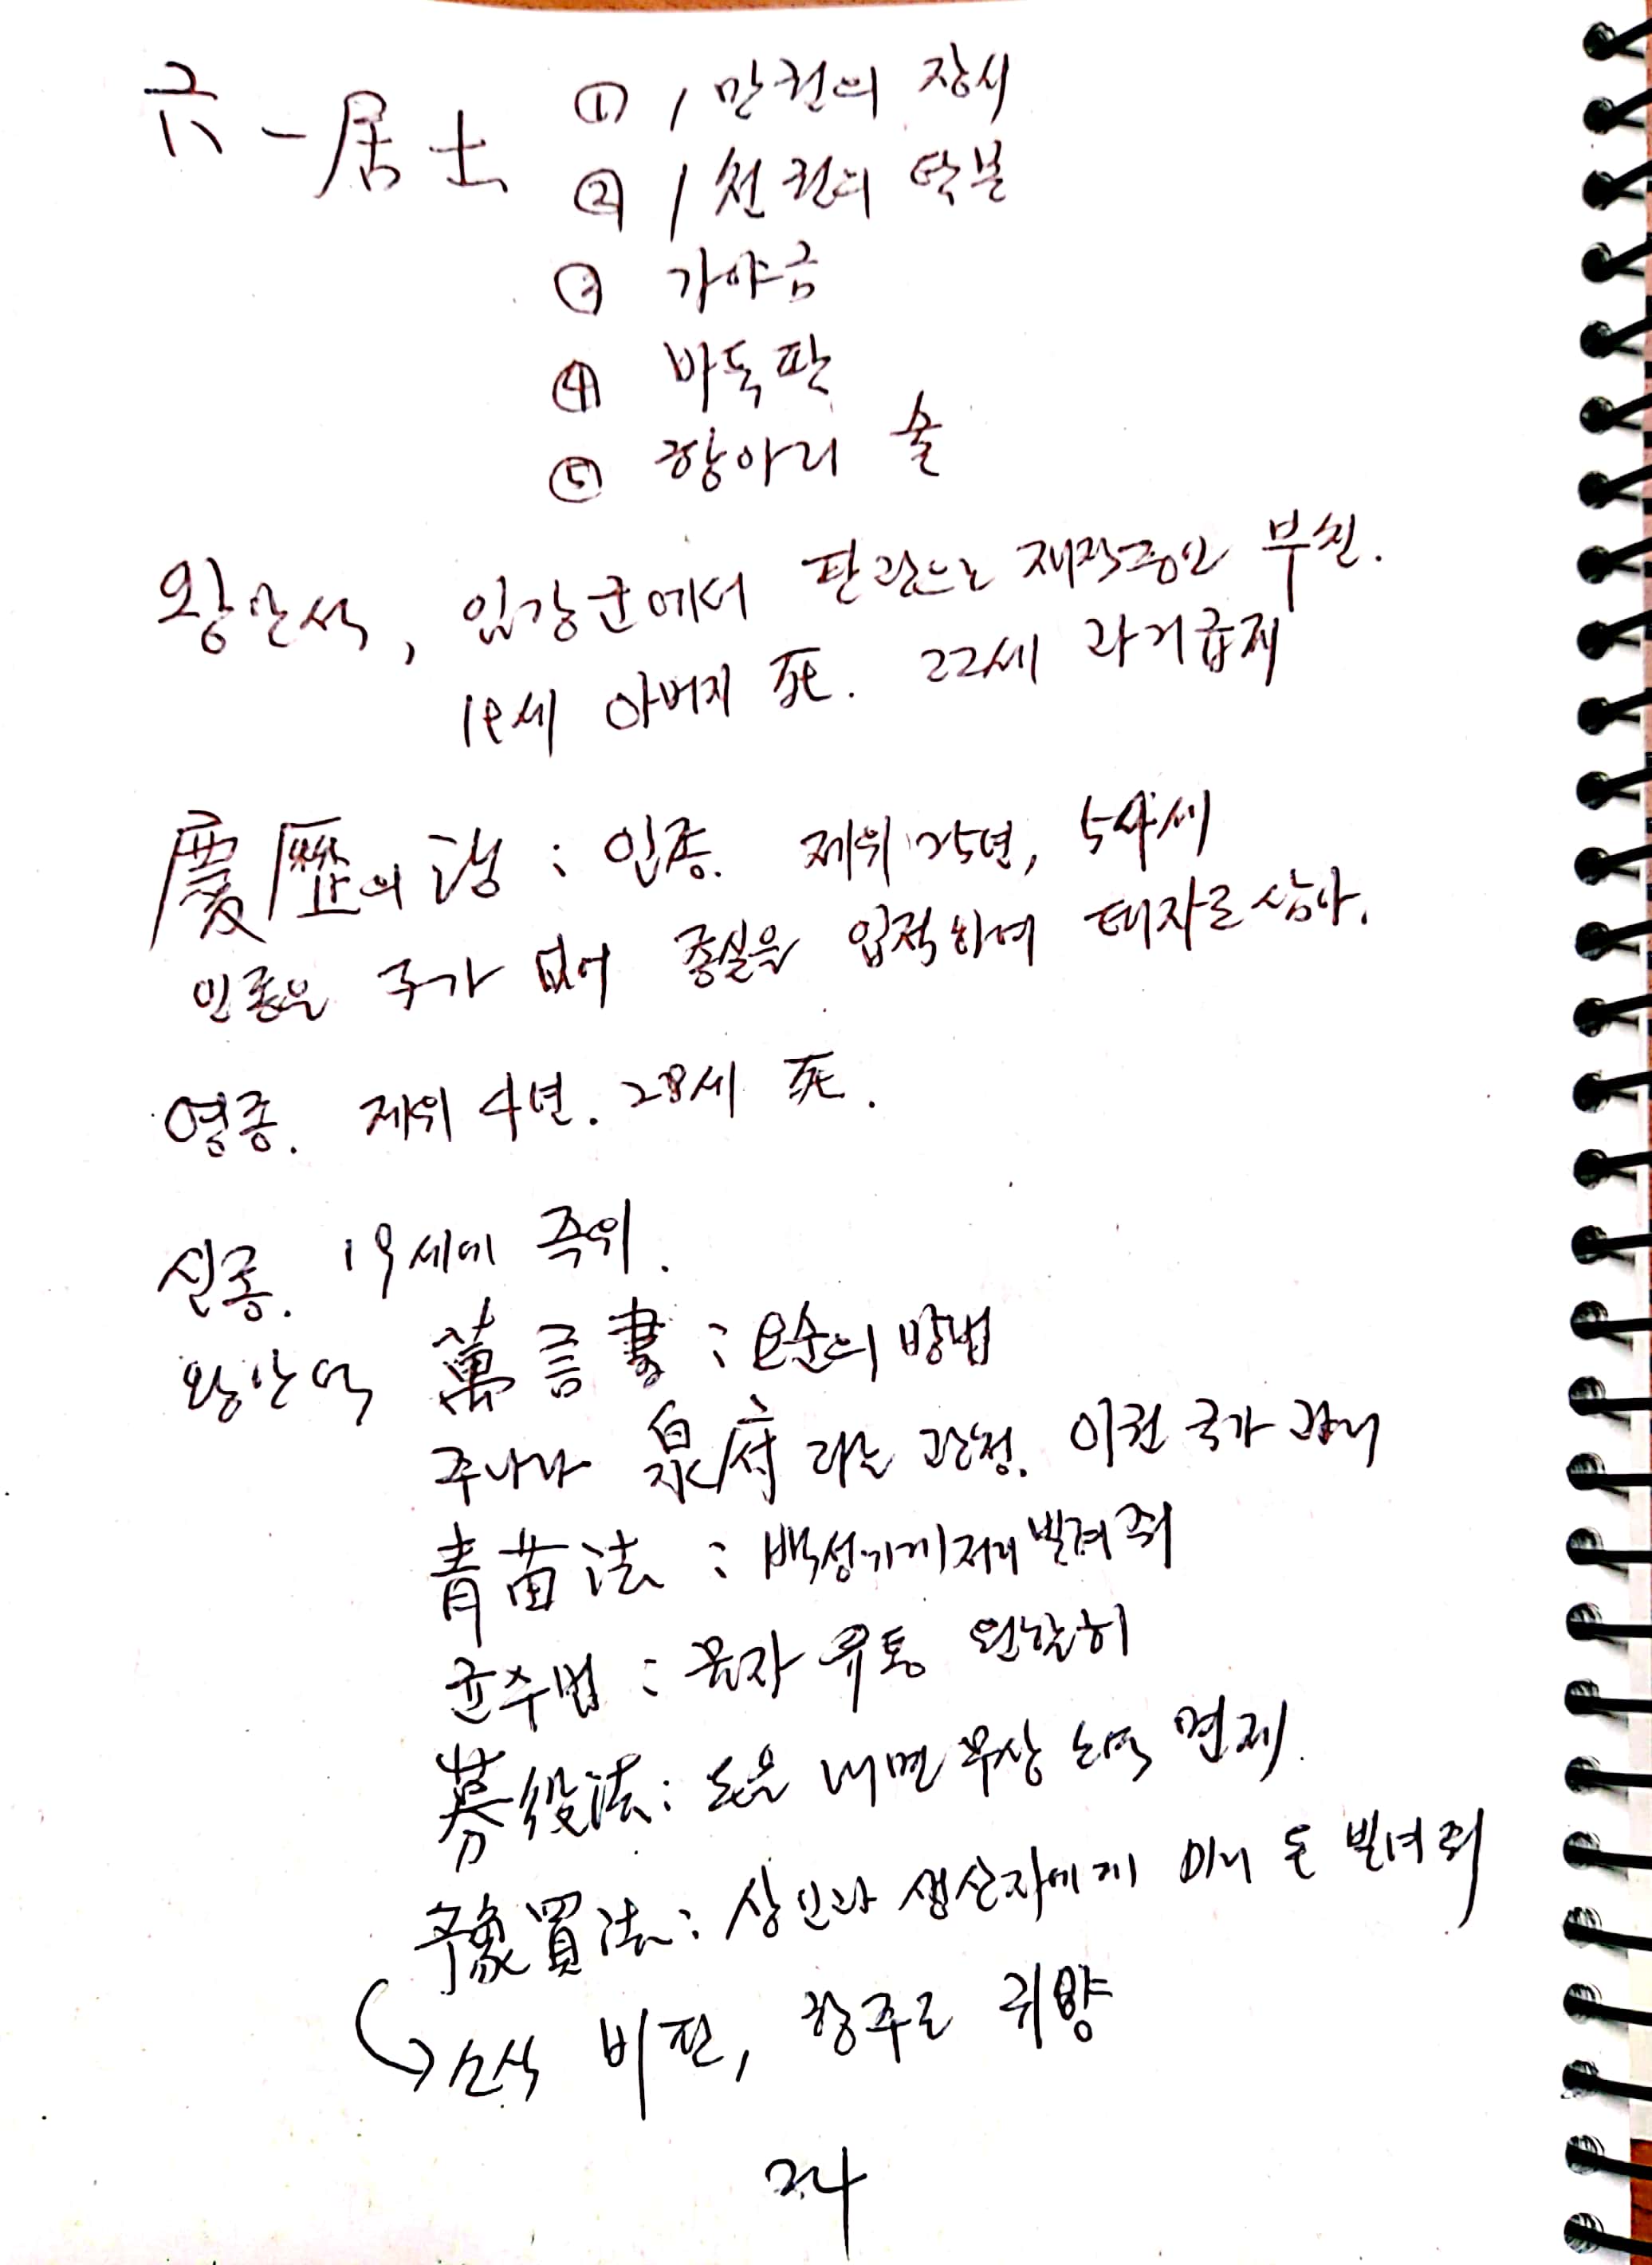 六一居士 ① 1만권의 장서
② 1천권의 탁본
③ 가야금
④ 바둑판
⑤ 항아리 술
왕안석, 임강군에서 판관으로 재직중인 부친.
19세 아버지 死. 22세 과거급제
慶歷의 : 인종. 제위 25년, 54세
인종은 후가 없어 종실을 입적하여 태자로 삼다.
영종. 제위 4년. 28세 死.
신종. 19세에 즉위.
왕안석 萬言書 : 요순의 방법
주나라 泉府라는 관청. 이권 국가 관리
靑苗法 : 백성에게 저리 빌려줘
균수법 : 물자 유통 원활히
募役法 : 돈을 내면 무상 노역 면제.
豫買法 : 상인과 생산자에게 미리 돈 빌려줘
소식 비판, 항주로 귀양
24